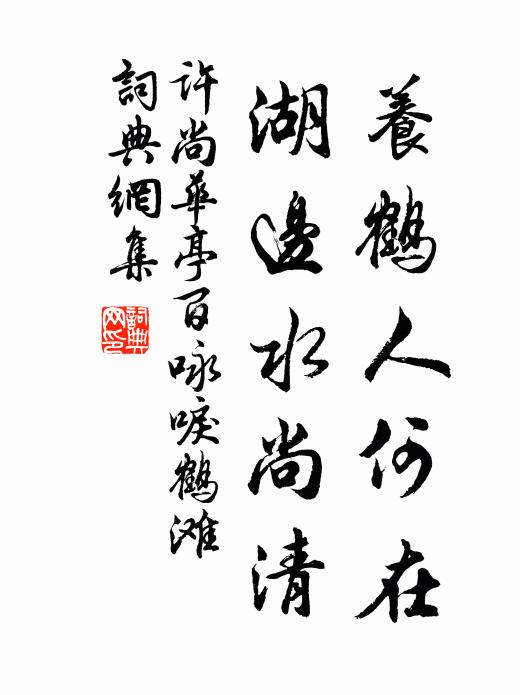 養鶴人何在
湖邊水尚清
许尚華亭百咏唳鶴滩
詞典網集
詞典网印